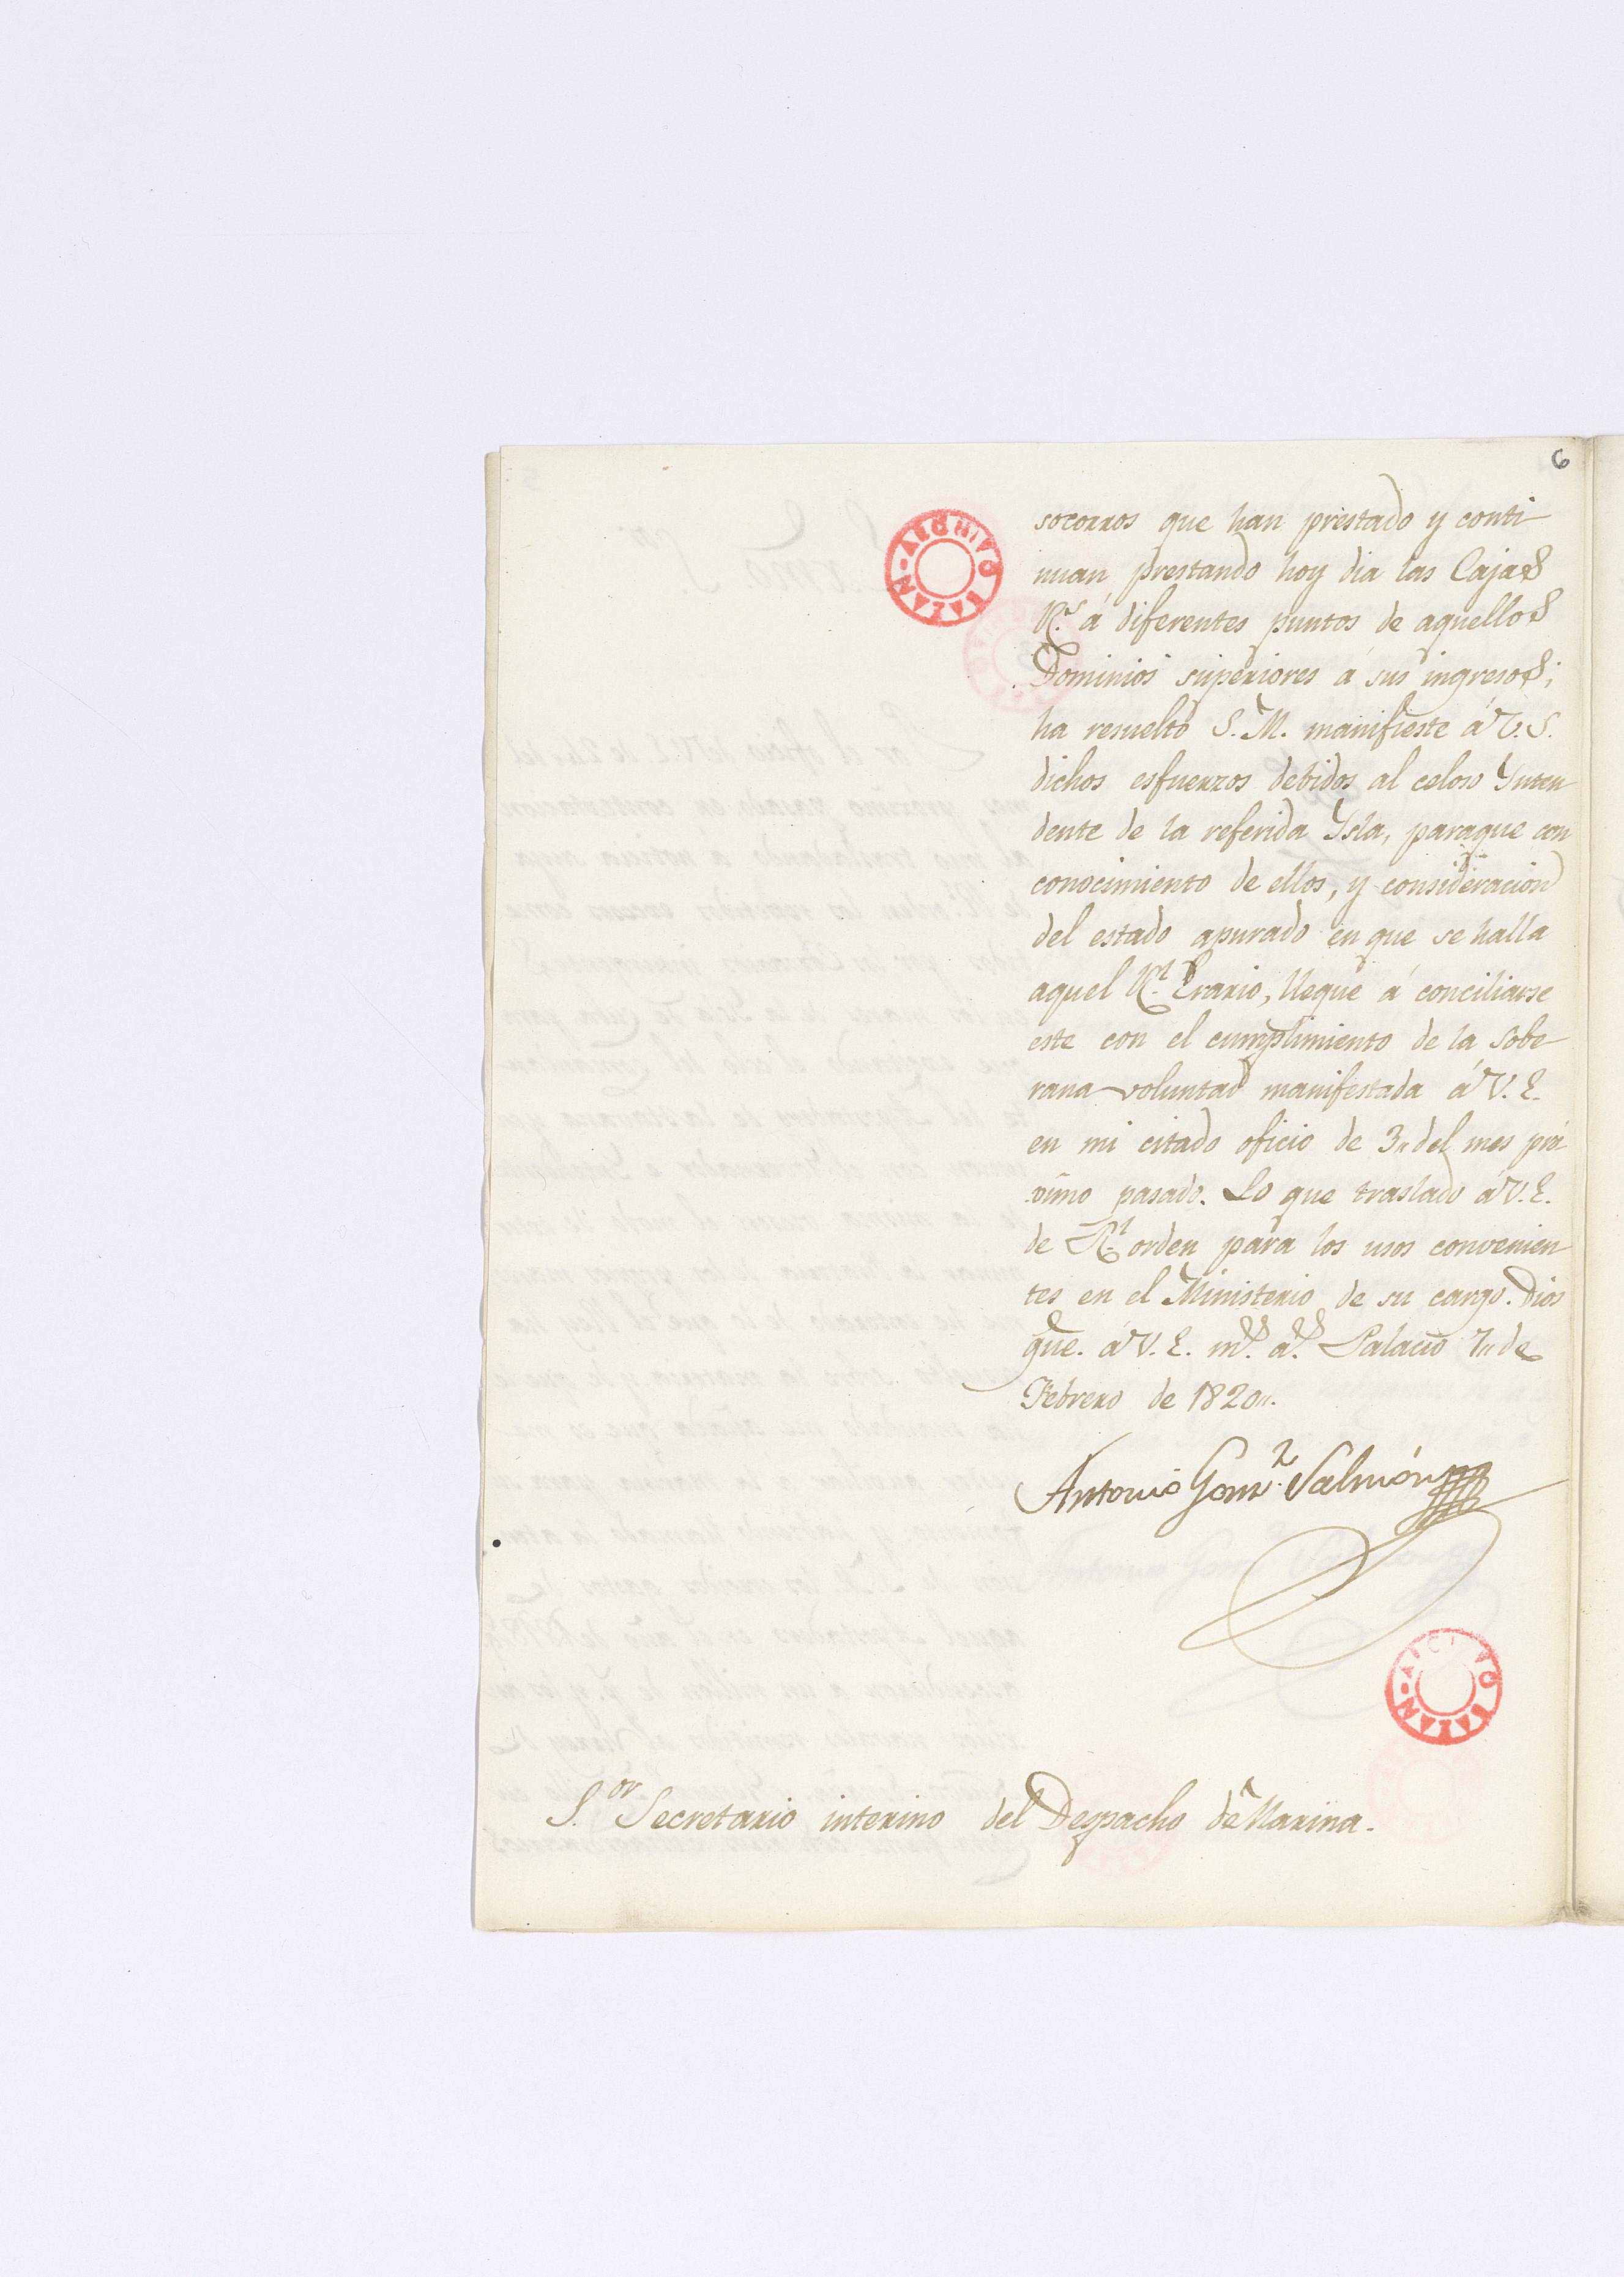 6
ARCHIVO BAZAN
socorros que han prestado y conti
nuan prestando hoy dia las Cajas
R.s á diferentes puntos de aquellos
Dominios superiores á sus ingresos;
ha resuelto S. M. manifieste á V. S.
dichos esfuerzos debidos al celoso Ynten
dente de la referida Ysla, paraque con
conocimiento de ellos, y consideracion
del estado apurado en que se halla
aquel R.l Erario, llegue á conciliarse
este con el cumplimiento de la sobe
rana voluntad manifestada á V. E.
en mi citado oficio de 3,, del mes pró
ximo pasado. Lo que traslado á V. E.
de R.l orden para los usos convenien
tes en el Ministerio de su cargo. Dios
gue. á V. E. m.s a.s Palacio 7,, de
Febrero de 1820,,.
Antonio Gonz. Salmón
ARCHIVO BAZAN
S.or Secretario interino del Despacho de Marina.